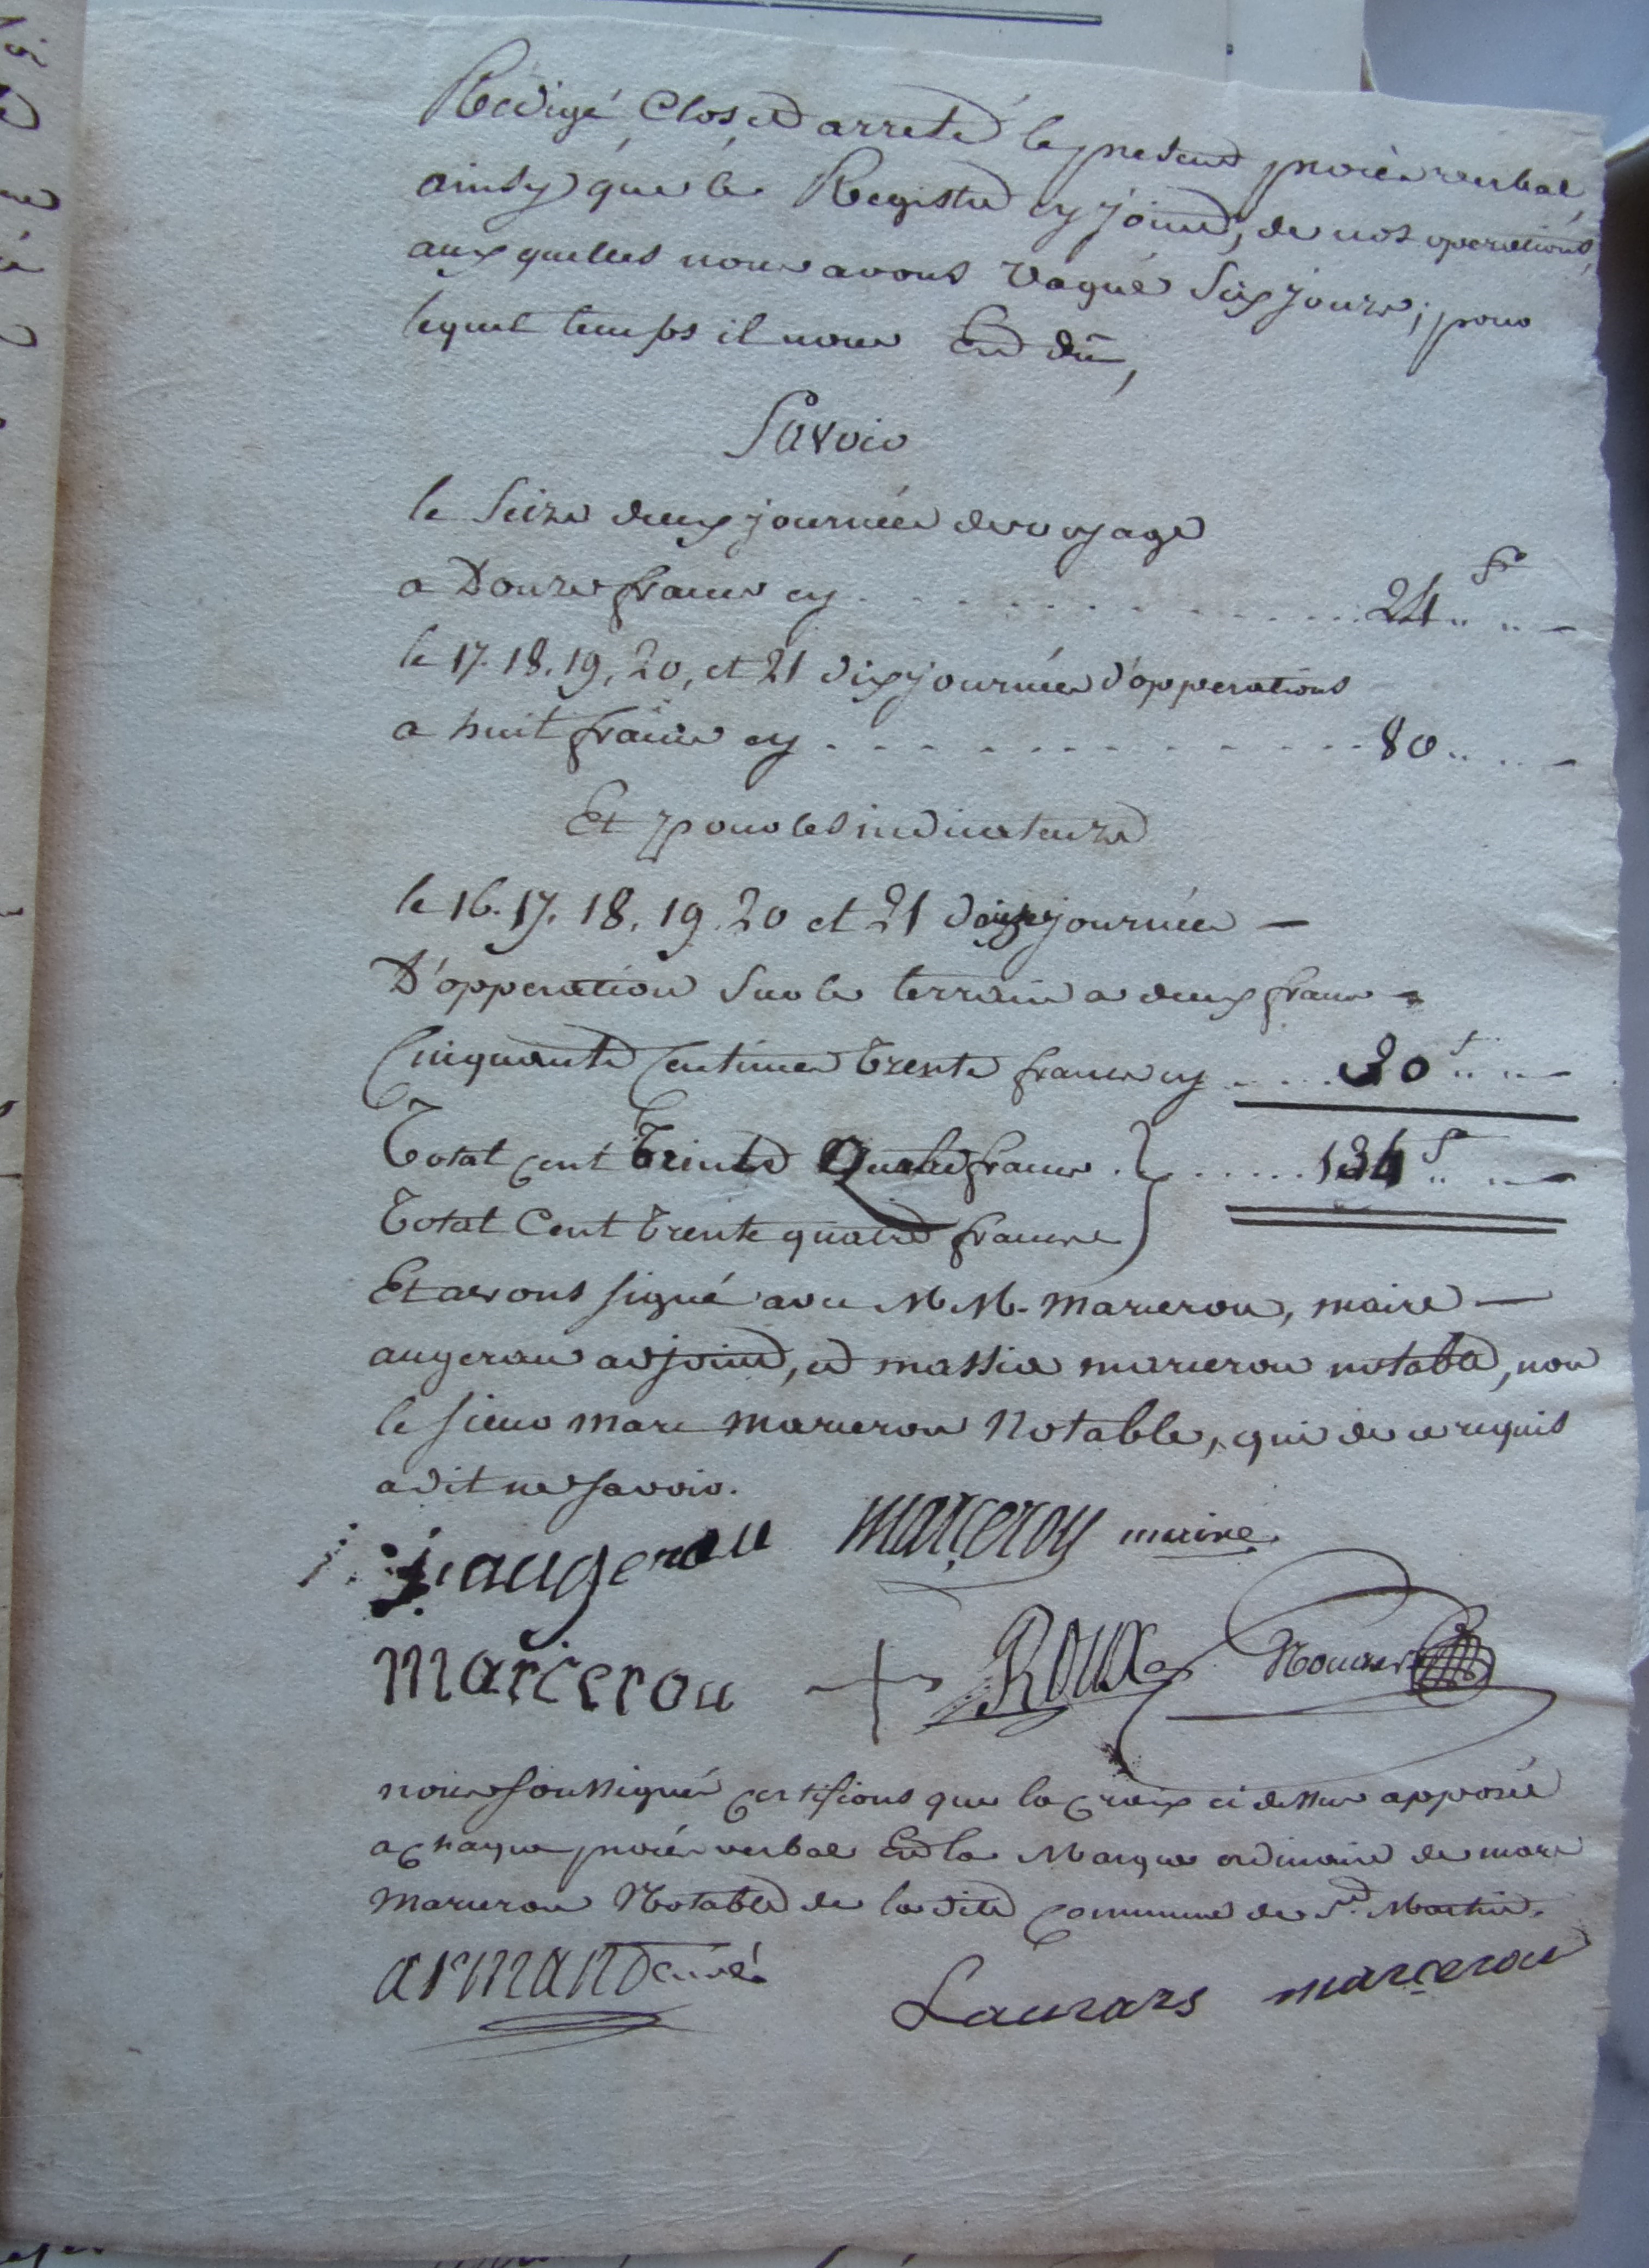 Redigé Clos et arreté le present procès verbal,
ainsy que le Registre cy joint, de nos operations,
aux quelles nous avons vaqué Six jours; pour
lequel temps il nous Est dû,
Savoir
le Seize deux journées de voyage
a Douze francs cy . . . . . . . . . . . . 24 f .. .. —
le 17. 18. 19, 20, et 21 dix journées d'opperations
a huit francs cy . . . . . . . . . . . . 80 .. .. —
Et pour les indicateurs
le 16. 17. 18. 19. 20 et 21 journées —
D'opperation Sur le terrain a deux francs
Cinquante Centimes trente francs cy . . . . 30 f .. .. —
Total cent trente Quatre francs . } . . . . . . 134 f .. .. —
Total Cent trente quatre francs
Et avons signé avec M M. Marcerou, maire —
augerau adjoint, et massia marcerou notable, non
le sieur Marc Marcerou Notable, qui de ce requis
a dit ne savoir.
augerau marcerou maire
marcerou + Roux
nous soussignés certifions que la croix ci dessus apposée
a chaque procès verbal Est la Marque ordinaire de marc
Marcerou Notable de la dite commune de St. Martin.
armand curé Laurans marcerou